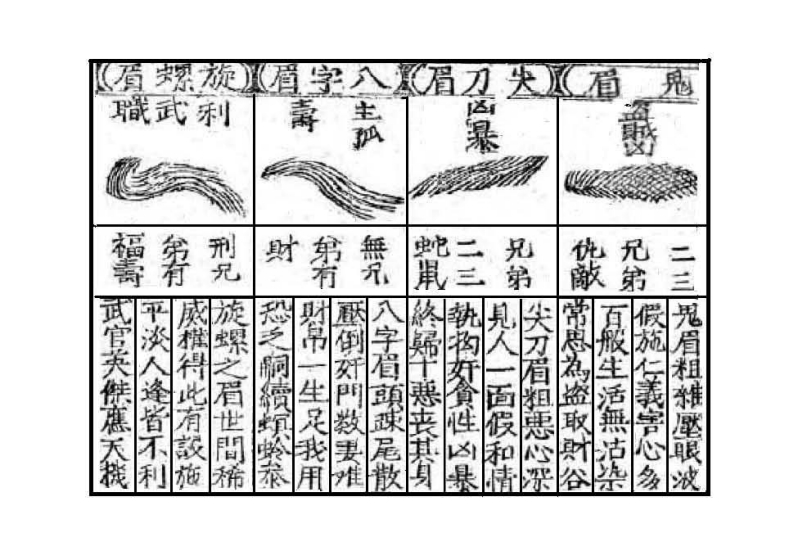 鬼眉
尖刀眉
八字眉
旋螺眉
盜賊凶
凶暴
主孤
壽
利武職
二三
兄弟
仇敵
兄弟
二三
蛇鼠
無兄
苐有
財
刑兄
苐有
福壽
鬼眉粗雜壓眼波
假施仁義害心多
百般生活無沾染
常思為盜取財谷
尖刀眉粗惡心深
見人一面假和情
執拘奸貪性凶暴
終歸十惡喪其身
八字眉頭疎尾散
壓倒奸門数妻难
財帛一生足我用
恐乏嗣續螟蛉
旋螺之眉世間稀
威權得此有設施
平淡人逢皆不利
武官英傑應天機